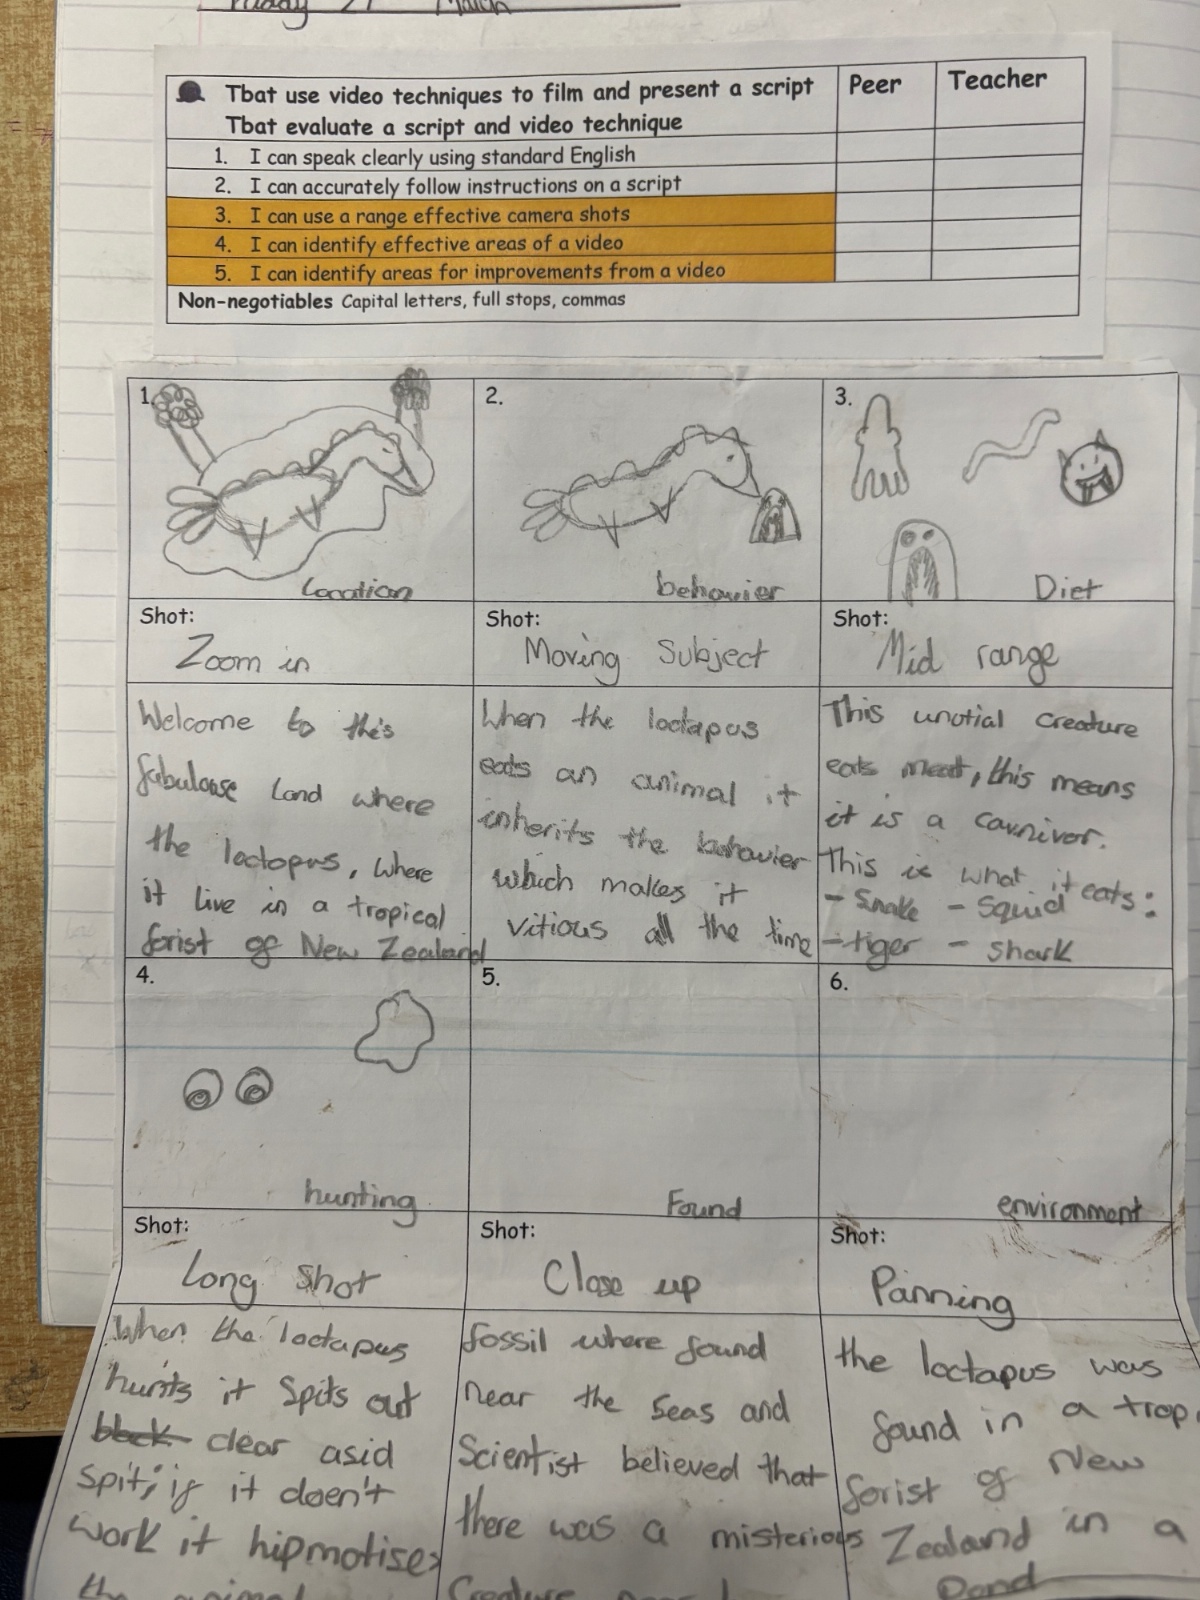 Friday 21 March
Tbat use video techniques to film and present a script
Tbat evaluate a script and video technique
Peer
Teacher
1. I can speak clearly using standard English
2. I can accurately follow instructions on a script
3. I can use a range effective camera shots
4. I can identify effective areas of a video
5. I can identify areas for improvements from a video
Non-negotiables Capital letters, full stops, commas
1.
Location
Shot:
Zoom in
Welcome to this
fabulouse land where
the loctopus, where
it live in a tropical
forist of New Zealand
2.
behavier
Shot:
Moving Subject
When the loctapus
eats an animal it
inherits the behavier
which makes it
vitious all the time
3.
Diet
Shot:
Mid range
This unotial creature
eats meat, this means
it is a carnivor.
This is what it eats:
- Snake - Squid
- tiger - shark
4.
hunting
Shot:
Long Shot
When the loctapus
hunts it spits out
black clear asid
spit; if it doen't
work it hipmotises
the animal
5.
Found
Shot:
Close up
fossil where found
near the seas and
Scientist believed that
there was a misterious
Creature
6.
environment
Shot:
Panning
the loctapus was
found in a trop
forist of New
Zealand in a
Pond